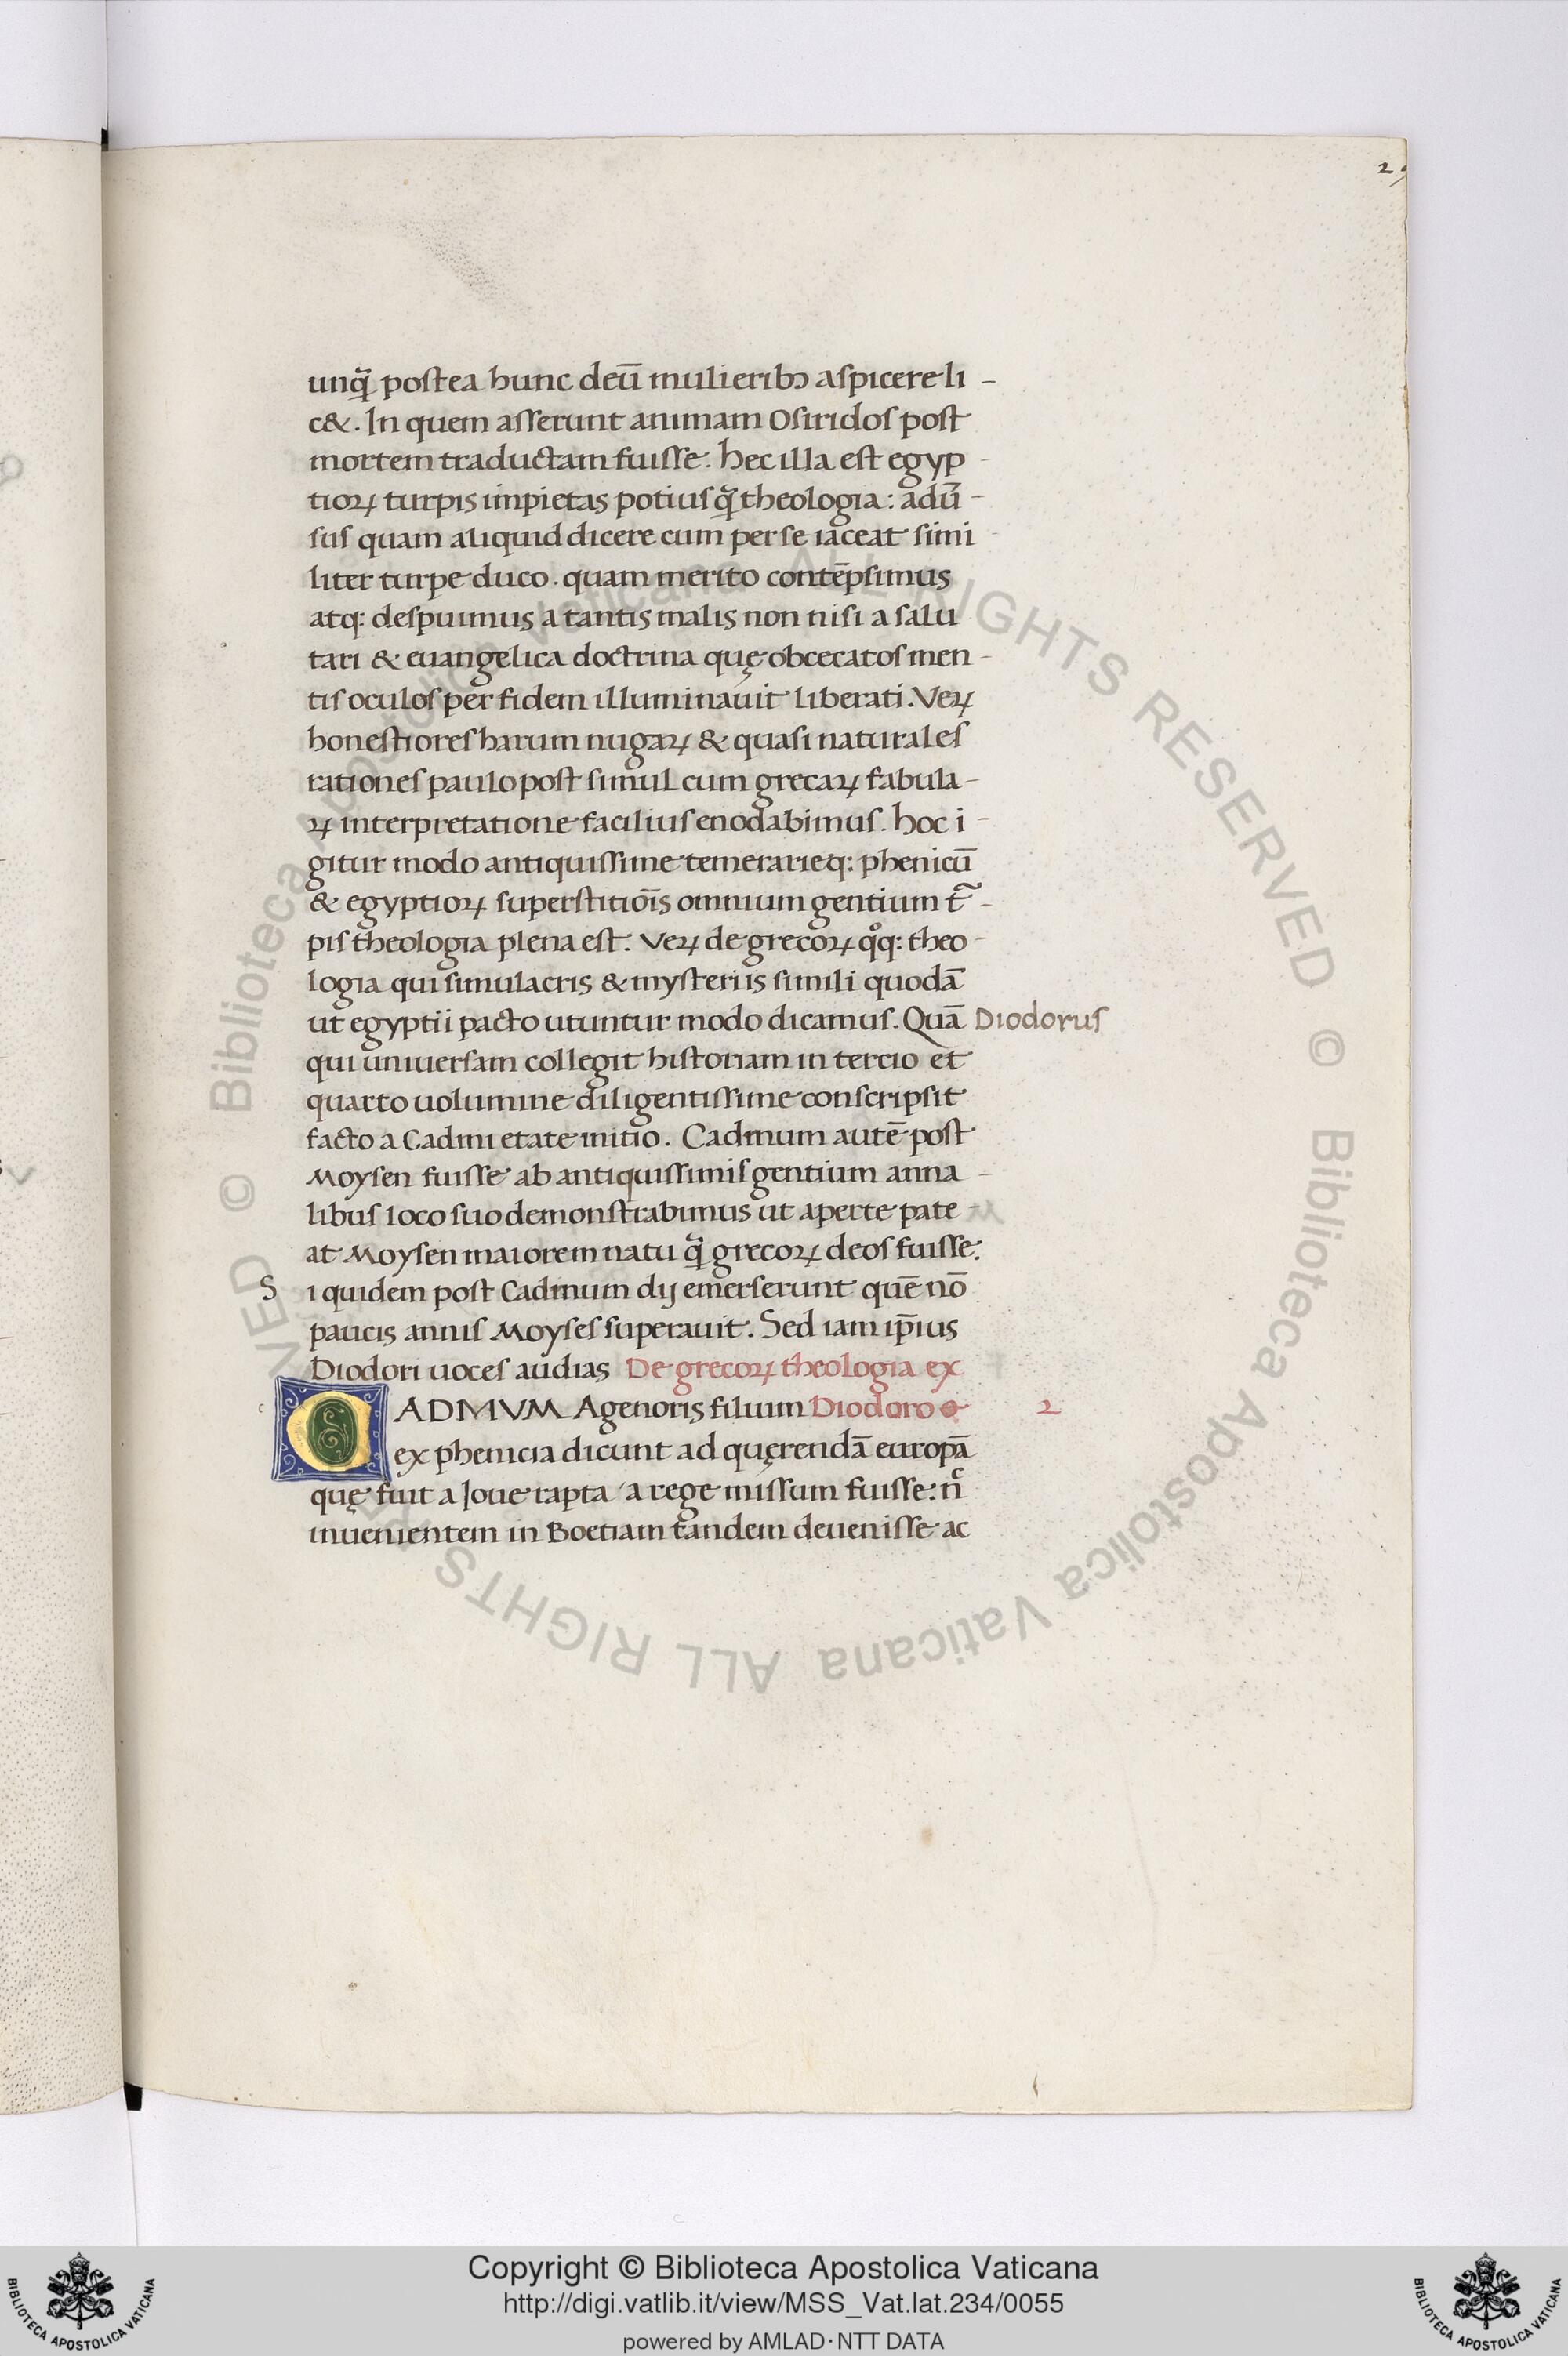 29
unq̃ postea hunc deū mulieribꝫ aspicere li-
c&. In quem asserunt animam Osiridos post
mortem traductam fuisse. hec illa est egyp-
tioꝝ turpis impietas potius q̃ theologia: adū-
sus quam aliquid dicere cum per se iaceat simi-
liter turpe duco. quam merito contēpsimus
atq: despuimus a tantis malis non nisi a salu
tari & euangelica doctrina quę obcecatos men-
tis oculos per fidem illuminauit liberati. Veꝝ
honestiores harum nugaꝝ & quasi naturales
rationes paulo post simul cum grecaꝝ fabula-
ꝝ interpretatione facilius enodabimus. hoc i-
gitur modo antiquissime temerarieq: phenicū
& egyptioꝝ superstitiōis omnium gentium t̃-
pis theologia plena est. Veꝝ de grecoꝝ qͦq: theo-
logia qui simulacris & mysteriis simili quodā
ut egyptii pacto utuntur modo dicamus. Quā Diodorus
qui uniuersam collegit historiam in tercio et
quarto uolumine diligentissime conscripsit
facto a Cadmi etate initio. Cadmum autē post
Moysen fuisse ab antiquissimis gentium anna-
libus loco suo demonstrabimus ut aperte pate-
at Moysen maiorem natu q̃ grecoꝝ deos fuisse.
Si quidem post Cadmum dij emerserunt quē nō
paucis annis Moyses superauit. Sed iam ip̄ius
Diodori uoces audias De grecoꝝ theologia ex
CADMVM Agenoris filium Diodoro 2
ex phenicia dicunt ad quęrendā europā
quę fuit a Ioue rapta a rege missum fuisse: nͨ
inuenientem in Boetiam tandem deuenisse ac
© Biblioteca Apostolica Vaticana ALL RIGHTS RESERVED © Biblioteca Apostolica Vaticana ALL RIGHTS RESERVED
Copyright © Biblioteca Apostolica Vaticana
http://digi.vatlib.it/view/MSS_Vat.lat.234/0055
powered by AMLAD·NTT DATA
BIBLIOTECA APOSTOLICA VATICANA
BIBLIOTECA APOSTOLICA VATICANA